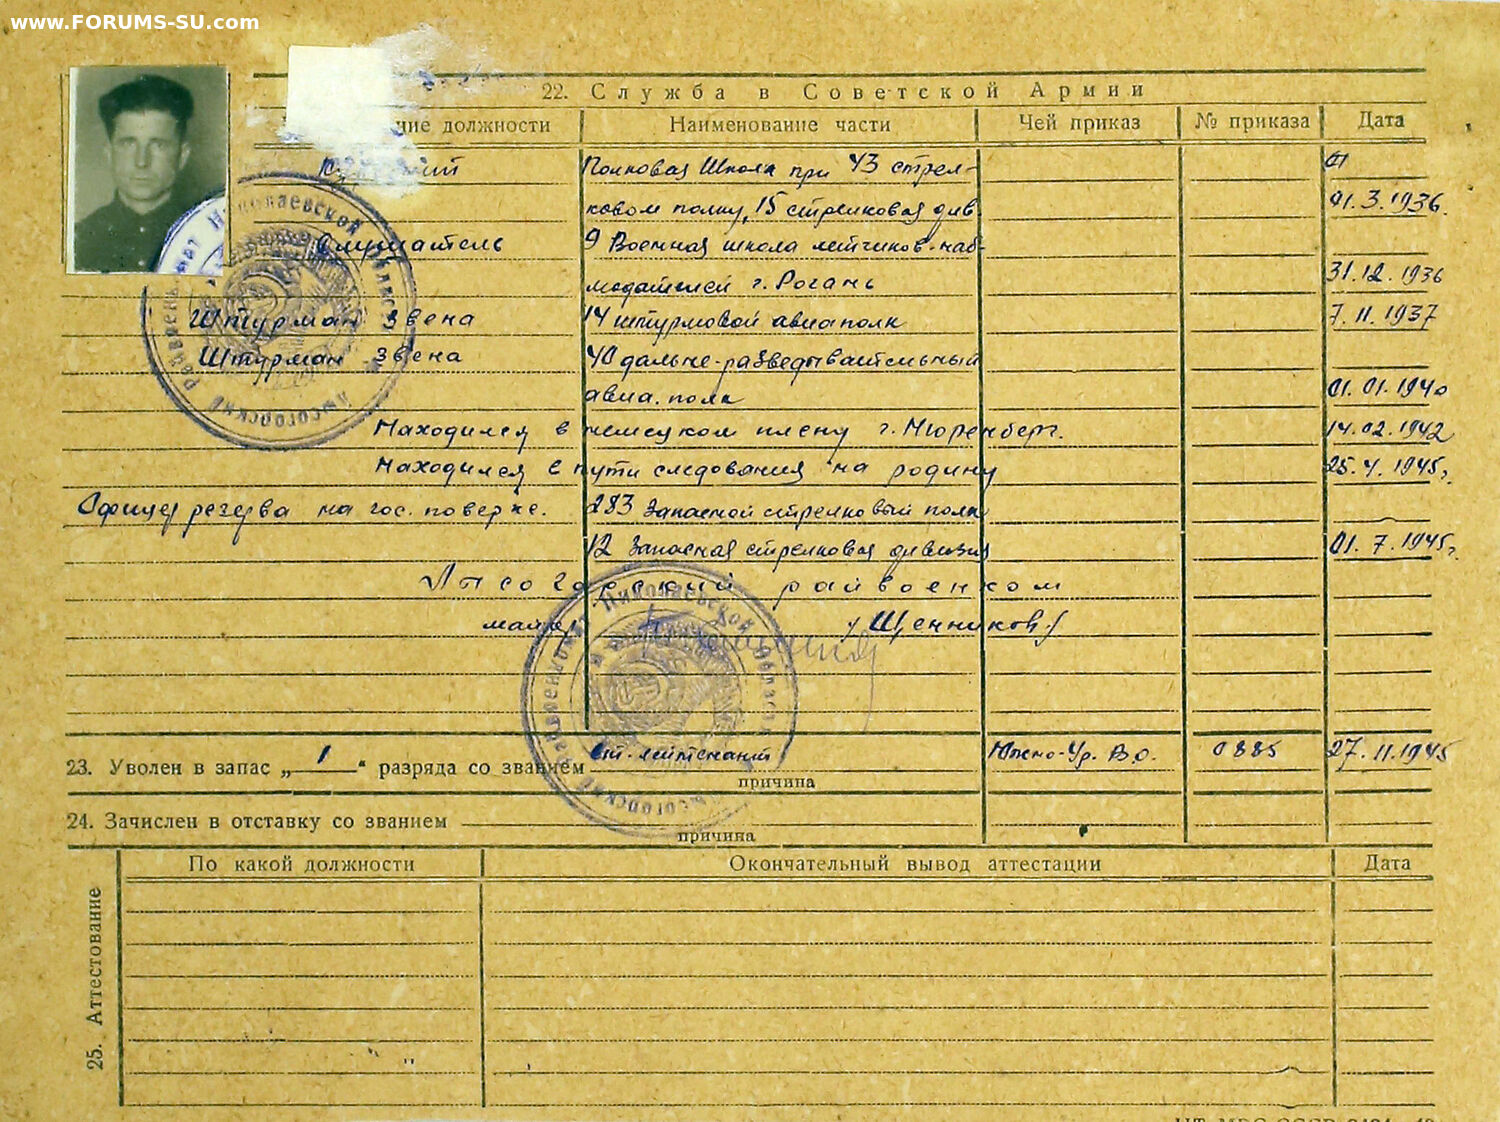 www.FORUMS-SU.com
22. Служба в Советской Армии
ние должности Наименование части Чей приказ № приказа Дата
Полковая Школа при 43 стрел-
ковом полку, 15 стрелковая див 01.3.1936.
Слушатель 9 Военная школа летчиков-наб-
людателей г. Рогань 31.12.1936
Штурман звена 14 штурмовой авиаполк 7.11.1937
Штурман звена 40 дальне-разведывательный
авиа.полк 01.01.1940
Находился в немецком плену г. Нюренберг. 14.02.1942
Находился в пути следования на родину 25.4.1945г.
Офицер резерва на гос. поверке. 283 Запасной стрелковый полк
12 Запасная стрелковая дивизия 01.7.1945г.
Лысогорский райвоенком
майор /Щенников/
23. Уволен в запас „ 1 “ разряда со званием ст. лейтенант Южно-Ур. В.О. 0885 27.11.1945
причина
24. Зачислен в отставку со званием
причина
25. Аттестование
По какой должности Окончательный вывод аттестации Дата